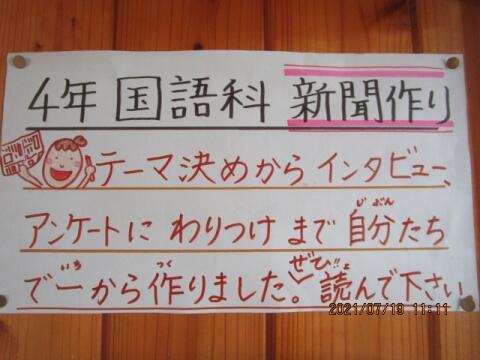 4年 国語科 新聞作り
テーマ決めから インタビュー、
アンケートに わりつけ まで 自分たち
じぶん
で一から作りました。ぜひ!!読んで下さい
いち つく よ
2021/07/19 11:11